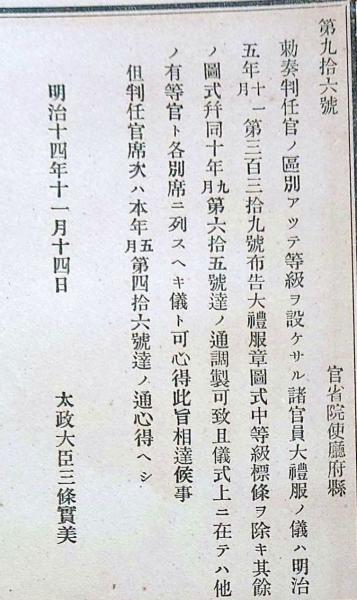 第九拾六號
官省院使廳府縣
勅奏判任官ノ區別アツテ等級ヲ設ケサル諸官員大禮服ノ儀ハ明治
五年十一月第三百三拾九號布告大禮服章圖式中等級標條ヲ除キ其餘
ノ圖式幷同十年九月第六拾五號達ノ通調製可致且儀式上ニ在テハ他
ノ有等官ト各別席ニ列スヘキ儀ト可心得此旨相達候事
但判任官席次ハ本年五月第四拾六號達ノ通心得ヘシ
明治十四年十一月十四日
太政大臣三條實美